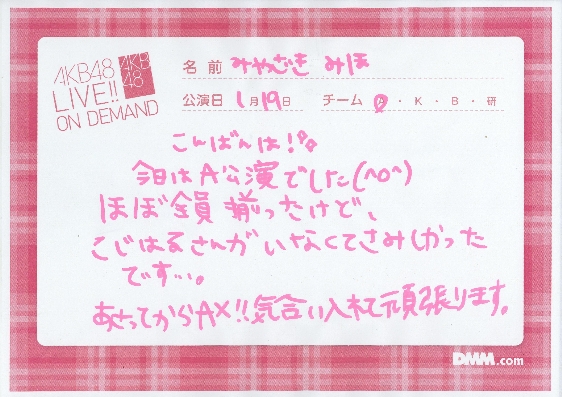 AKB48
LIVE!!
ON DEMAND
AKB
48
名前 みやざき みほ
公演日 1月19日 チーム A・K・B・研
こんばんは!
今日はA公演でした(^o^)
ほぼ全員揃ったけど、
こじはるさんがいなくてさみしかった
です…。
あさってからAX!!気合い入れて頑張ります。
DMM.com